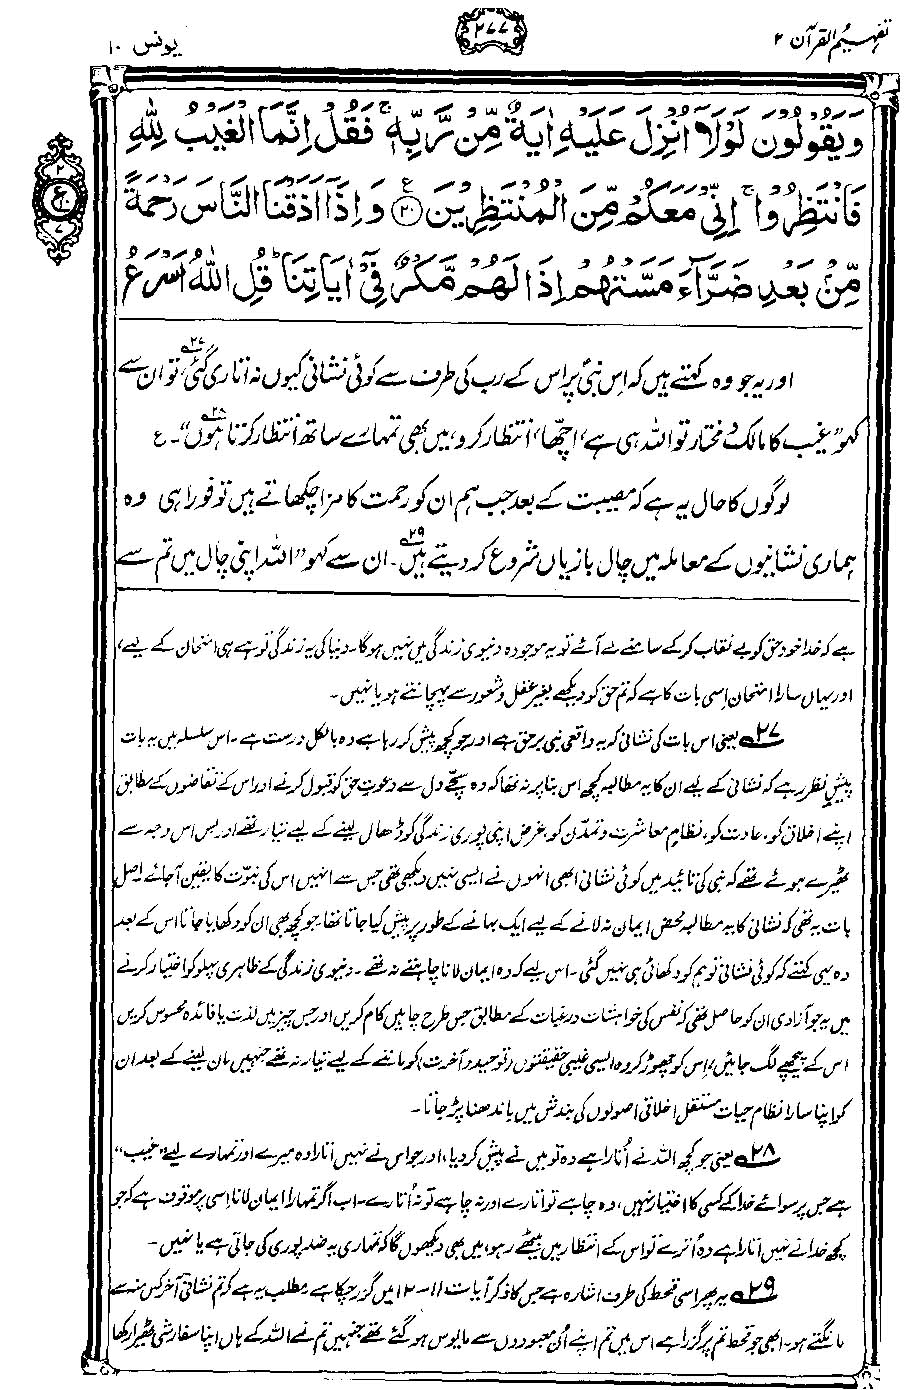 تفہیم القرآن ۲
۲۷۷
یونس ۱۰
وَيَقُوْلُوْنَ لَوْلَاۤ اُنْزِلَ عَلَيْهِ اٰيَةٌ مِّنْ رَّبِّهٖ ۚ فَقُلْ اِنَّمَا الْغَيْبُ لِلّٰهِ
فَانْتَظِرُوْا ۚ اِنِّيْ مَعَكُمْ مِّنَ الْمُنْتَظِرِيْنَ ﴿۲۰﴾ ع وَاِذَاۤ اَذَقْنَا النَّاسَ رَحْمَةً
مِّنْۢ بَعْدِ ضَرَّآءَ مَسَّتْهُمْ اِذَا لَهُمْ مَّكْرٌ فِيْۤ اٰيَاتِنَا ؕ قُلِ اللّٰهُ اَسْرَعُ
۲
ع
۱۰
۷
اور یہ جو وہ کہتے ہیں کہ اِس نبی پر اس کے رب کی طرف سے کوئی نشانی کیوں نہ اتاری گئی۲۷، تو ان سے
کہو "غیب کا مالک و مختار تو اللہ ہی ہے، اچھا، انتظار کرو، میں بھی تمہارے ساتھ انتظار کرتا ہوں۲۸"۔ ع
لوگوں کا حال یہ ہے کہ مصیبت کے بعد جب ہم ان کو رحمت کا مزا چکھاتے ہیں تو فوراً ہی وہ
ہماری نشانیوں کے معاملہ میں چال بازیاں شروع کر دیتے ہیں۲۹۔ ان سے کہو "اللہ اپنی چال میں تم سے
ہے کہ خدا خود حق کو بے نقاب کر کے سامنے لے آئے تو یہ موجودہ دنیوی زندگی میں نہیں ہوگا۔ دنیا کی یہ زندگی تو ہے ہی امتحان کے لیے،
اور یہاں سارا امتحان اِسی بات کا ہے کہ تم حق کو دیکھے بغیر عقل و شعور سے پہچانتے ہو یا نہیں۔
۲۷ یعنی اس بات کی نشانی کہ یہ واقعی نبی برحق ہے اور جو کچھ پیش کر رہا ہے وہ بالکل درست ہے۔ اس سلسلہ میں یہ بات
پیشِ نظر رہے کہ نشانی کے لیے ان کا یہ مطالبہ کچھ اس بنا پر نہ تھا کہ وہ سچے دل سے دعوتِ حق کو قبول کرنے اور اس کے تقاضوں کے مطابق
اپنے اخلاق کو، عادت کو، نظامِ معاشرت و تمدن کو، غرض اپنی پوری زندگی کو ڈھال لینے کے لیے تیار تھے اور بس اس وجہ سے
ٹھیرے ہوئے تھے کہ نبی کی تائید میں کوئی نشانی ابھی انہوں نے ایسی نہیں دیکھی تھی جس سے انہیں اس کی نبوّت کا یقین آجائے۔ اصل
بات یہ تھی کہ نشانی کا یہ مطالبہ محض ایمان نہ لانے کے لیے ایک بہانے کے طور پر پیش کیا جاتا تھا۔ جو کچھ بھی ان کو دکھایا جاتا اس کے بعد
وہ یہی کہتے کہ کوئی نشانی تو ہم کو دکھائی ہی نہیں گئی۔ اس لیے کہ وہ ایمان لانا چاہتے نہ تھے۔ دنیوی زندگی کے ظاہری پہلو کو اختیار کرنے
میں یہ جو آزادی ان کو حاصل تھی کہ نفس کی خواہشات و رغبات کے مطابق جس طرح چاہیں کام کریں اور جس چیز میں لذت یا فائدہ محسوس کریں
اس کے پیچھے لگ جائیں، اِس کو چھوڑ کر وہ ایسی غیبی حقیقتوں (توحید و آخرت) کو ماننے کے لیے تیار نہ تھے جنہیں مان لینے کے بعد ان
کو اپنا سارا نظامِ حیات مستقل اخلاقی اصولوں کی بندش میں باندھنا پڑ جاتا۔
۲۸ یعنی جو کچھ اللہ نے اُتارا ہے وہ تو میں نے پیش کر دیا، اور جو اس نے نہیں اتارا وہ میرے اور تمہارے لیے "غیب"
ہے جس پر سوائے خدا کے کسی کا اختیار نہیں، وہ چاہے تو اتارے اور نہ چاہے تو نہ اُتارے۔ اب اگر تمہارا ایمان لانا اِسی پر موقوف ہے کہ جو
کچھ خدا نے نہیں اتارا ہے وہ اُترے تو اس کے انتظار میں بیٹھے رہو، میں بھی دیکھوں گا کہ تمہاری یہ ضد پوری کی جاتی ہے یا نہیں۔
۲۹ یہ پھر اسی قحط کی طرف اشارہ ہے جس کا ذکر آیات ۱۱-۱۲ میں گزر چکا ہے۔ مطلب یہ ہے کہ تم نشانی آخر کس منہ سے
مانگتے ہو۔ ابھی جو قحط تم پر گزرا ہے اس میں تم اپنے اُن معبودوں سے مایوس ہو گئے تھے جنہیں تم نے اللہ کے ہاں اپنا سفارشی ٹھیرا رکھا